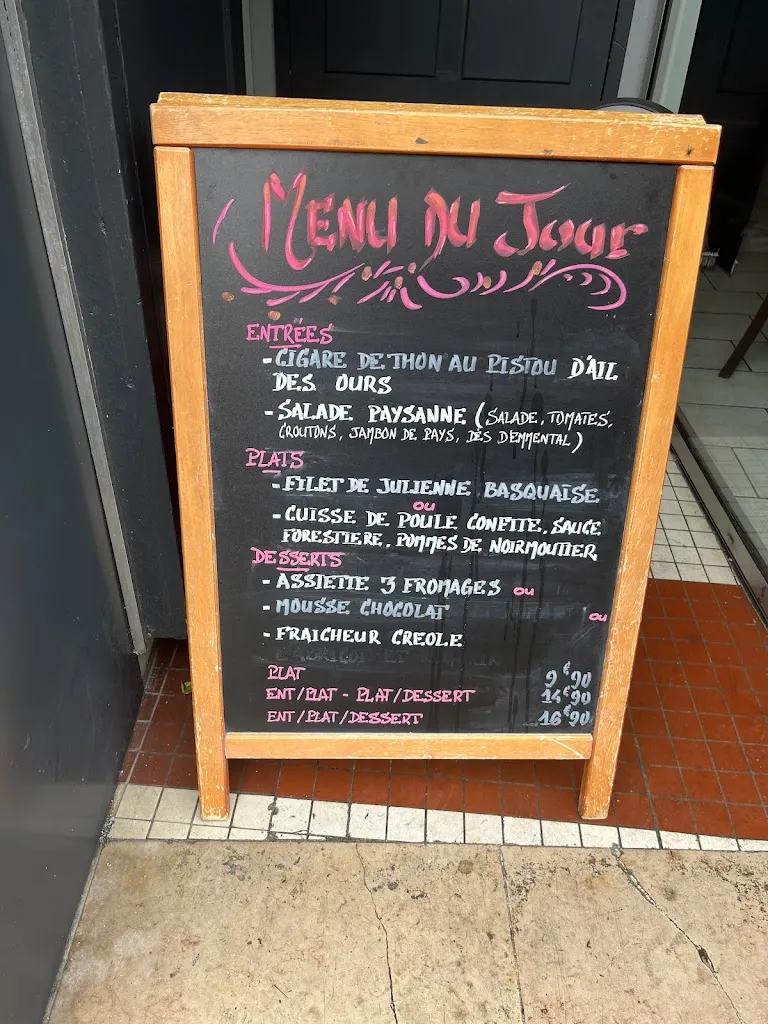 MENU DU JOUR
ENTRÉES
- CIGARE DE THON AU PISTOU D'AIL
DES OURS
- SALADE PAYSANNE (SALADE, TOMATES,
CROUTONS, JAMBON DE PAYS, DÉS D'EMMENTAL)
PLATS
- FILET DE JULIENNE BASQUAISE
OU
- CUISSE DE POULE CONFITE, SAUCE
FORESTIERE, POMMES DE NOIRMOUTIER
DESSERTS
- ASSIETTE 3 FROMAGES OU
- MOUSSE CHOCOLAT OU
- FRAICHEUR CREOLE
PLAT 9€90
ENT/PLAT - PLAT/DESSERT 14€90
ENT/PLAT/DESSERT 16€90